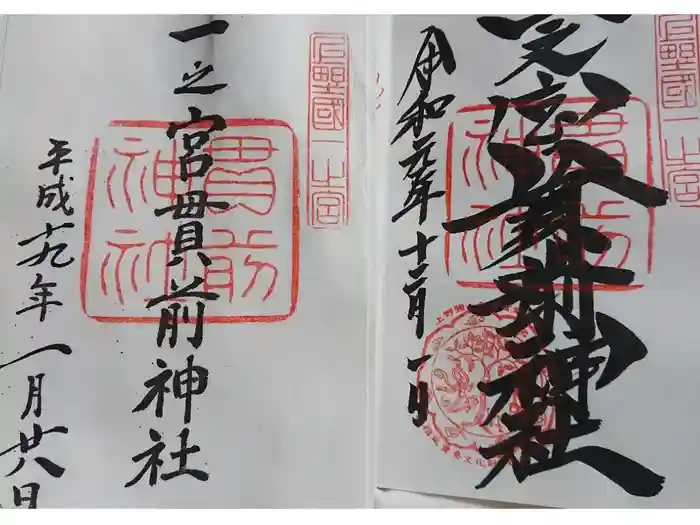 上野國一之宮
一之宮貫前神社
貫前神社
平成十九年一月廿八日
上野國一之宮
貫前神社
貫前神社
令和元年十二月一日